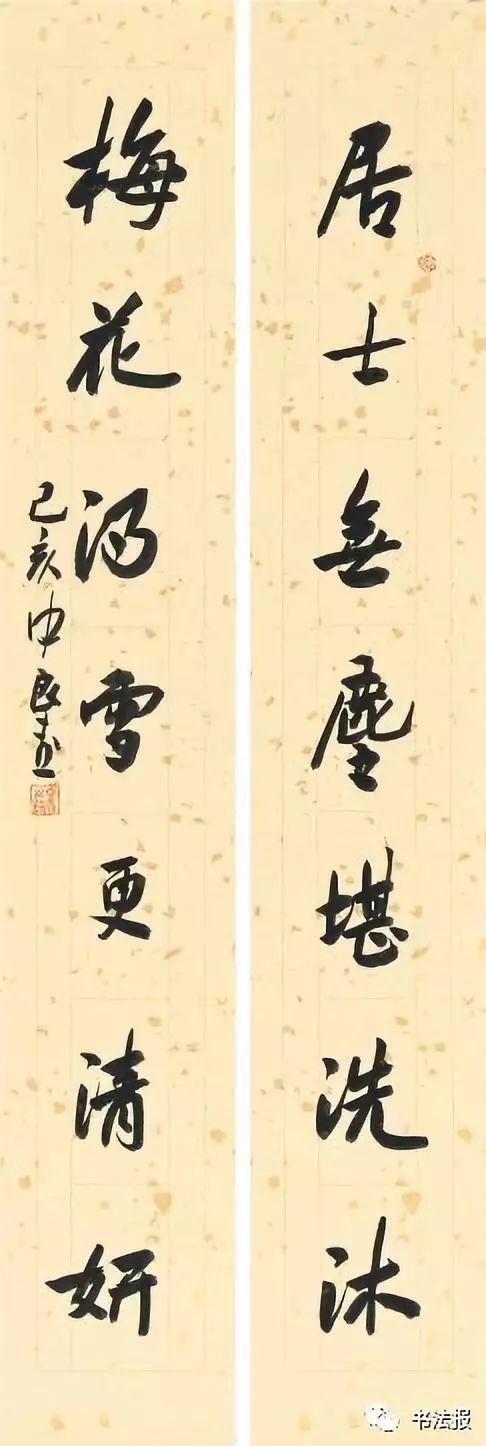 居士無塵堪洗沐
梅花得雪更清妍
己亥申良書
书法报